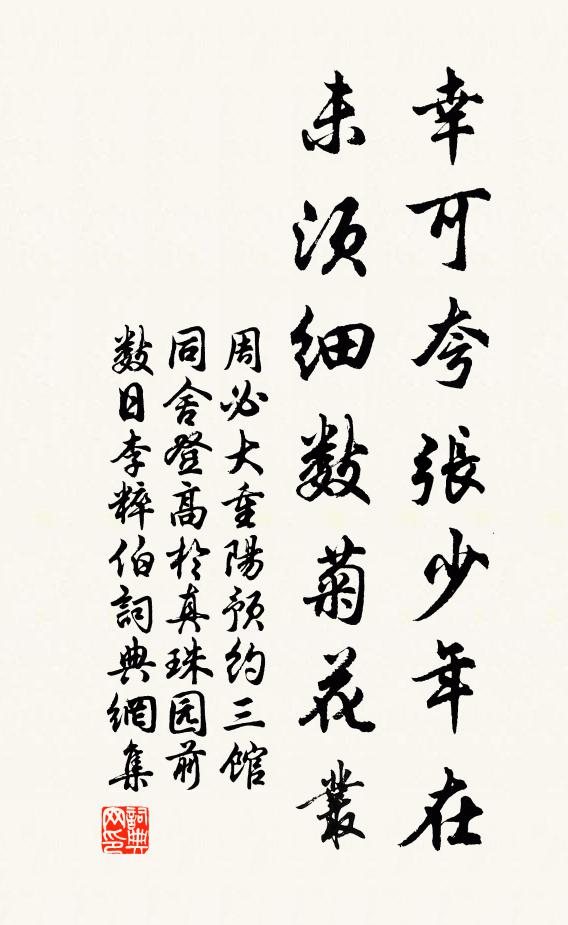 幸可夸張少年在
未須细数菊花叢
周必大重陽预约三馆
同舍登高於真珠园前
数日李粹伯詞典網集
詞典网印